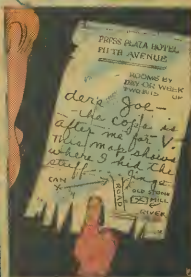 PRESS PLAZA HOTEL
FIFTH AVENUE
ROOMS BY
DAY OR WEEK
TWO BITS UP
dere Joe-
the Cops is
after me for V.
This map shows
where I hid the
stuff.
CAN
X
ROAD
OLD STONE
MILL
RIVER